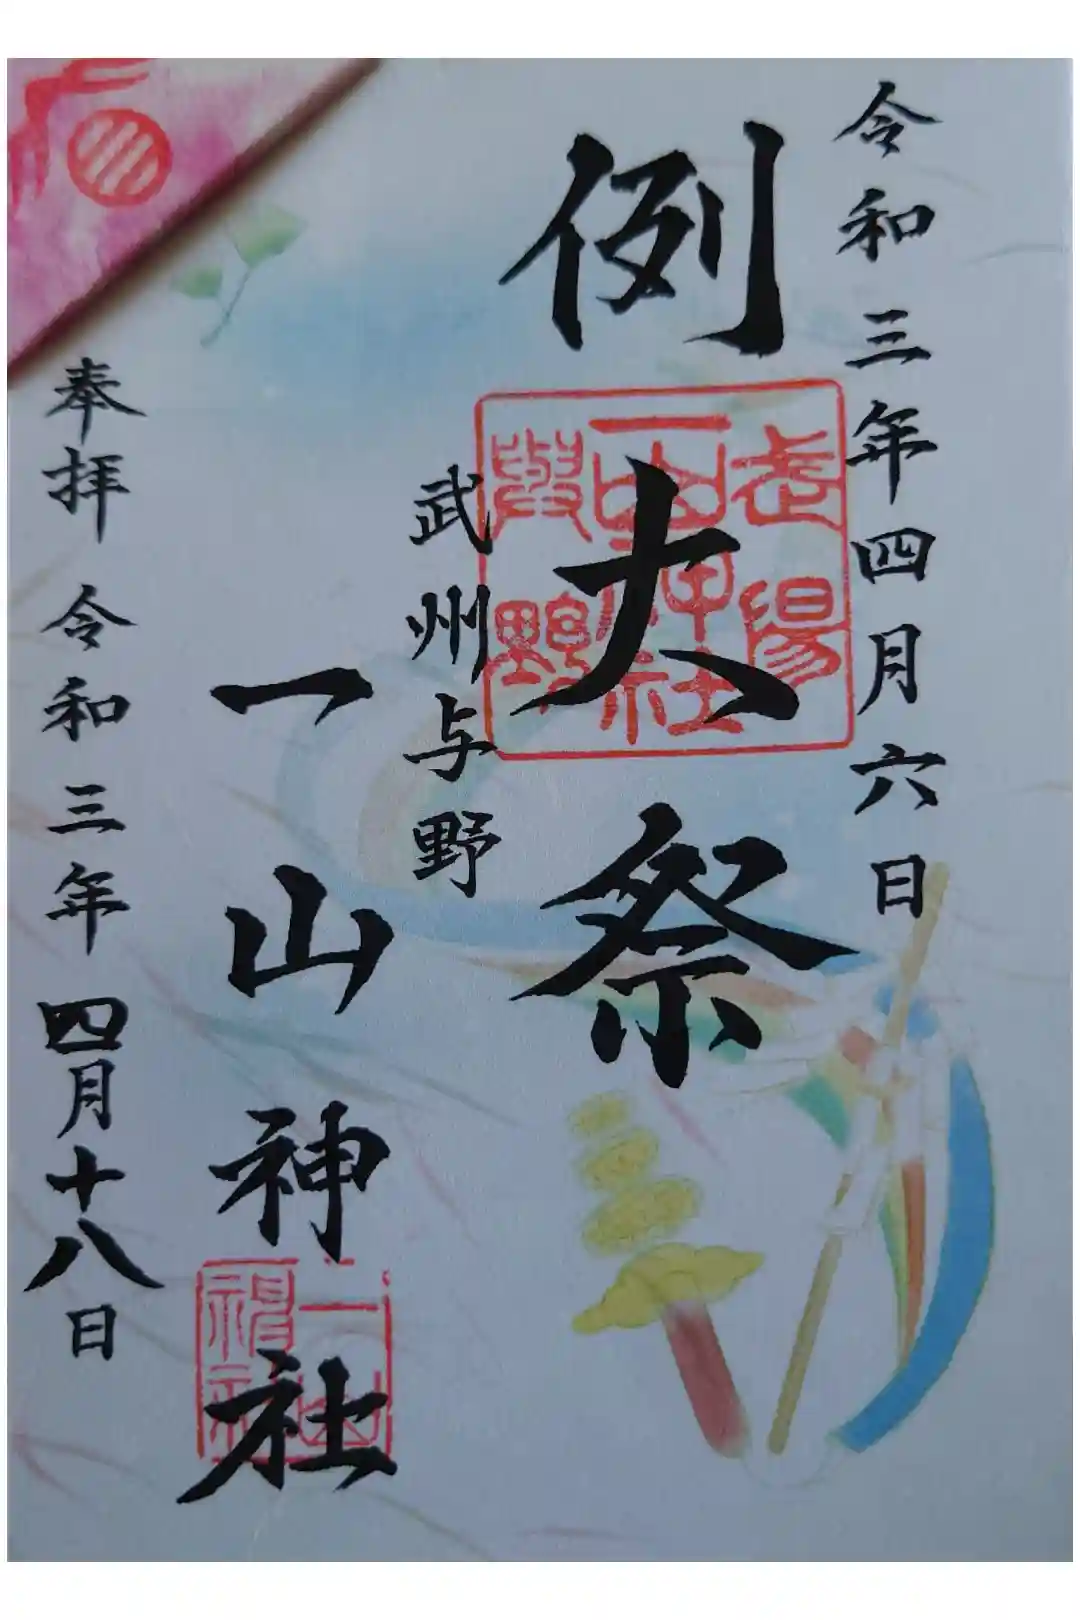 令和三年四月六日
例大祭
武陽
一山神社
與野
武州与野
一山神社
一山
神社
奉拝 令和三年 四月十八日